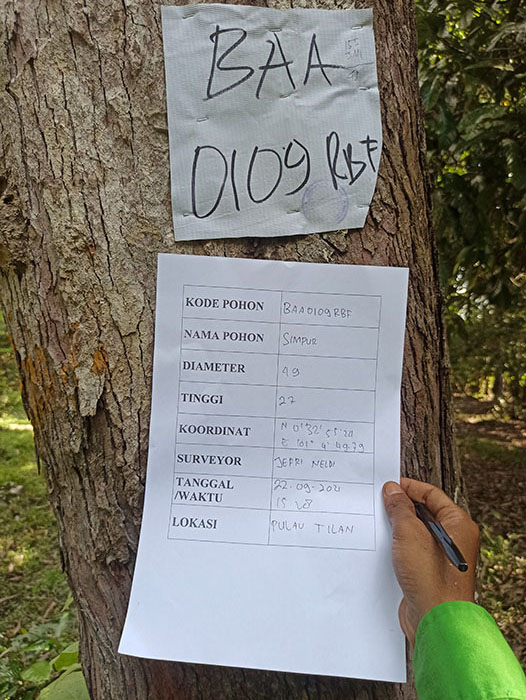 BAA
0109 RBF
KODE POHON BAA0109RBF
NAMA POHON SIMPUR
DIAMETER 49
TINGGI 27
KOORDINAT N 0°32'
E 101° 4' 49.79
SURVEYOR JEPRI
TANGGAL 22-09-2021
/WAKTU
LOKASI PULAU TILAN